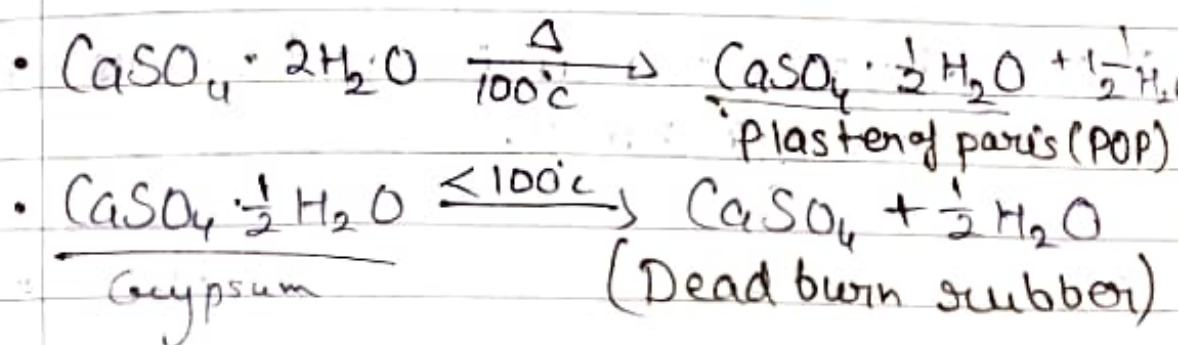 • CaSO₄ · 2H₂O —Δ/100°C→ CaSO₄ · ½ H₂O + 1½ H₂
Plaster of paris (POP)
• CaSO₄ · ½ H₂O —<100°c→ CaSO₄ + ½ H₂O
Gypsum (Dead burn rubber)